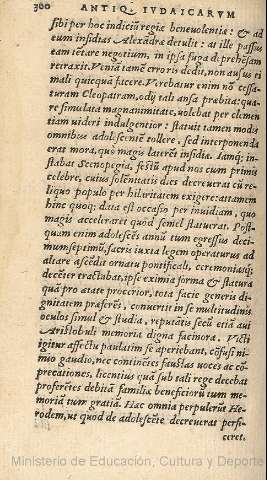 300 ANTIQ. IVDAICARVM
sibi per hoc indiciũ regiæ beneuolentia: & ad
eum insidias Alexãdræ detulit: at ille passus
eam tẽtare negotium, in ipsa fuga deprehẽsam
retraxit. Veniã tamẽ erroris dedit, non ausus ei
mali quicquã facere. Verebatur enim nõ cessa-
turam Cleopatram, odij tali ansa præbita: qua-
re simulata magnanimitate, uolebat per clemen
tiam uideri indulgentior: statuit tamen modis
omnibus adolescentẽ tollere, sed interponenda
erat mora, quo magis laterẽt insidiæ. Iamq; in-
stabat Scenopegia, festũ apud nos cum primis
celebre, cuius solẽnitatis dies decreuerat cũ re-
liquo populo per hilaritatem exigere: attamen
hinc quoq; data est occasio per inuidiam, quo
magis acceleraret quod semel statuerat. Post-
quam enim adolescẽs annũ tum egressus deci-
mumseptimũ, sacris iuxta legem operaturus ad
altare ascẽdit ornatu pontificali, ceremoniasq;
decẽter tractabat, ipse eximia forma & statura
quã pro ætate procerior, tota facie generis di-
gnitatem præferẽs, conuertit in se multitudinis
oculos simul & studia, reputãtis secũ etiã aui
Aristobuli memoria digna facinora. Victi
igitur affectu paulatim se aperiebant, cõfusi ni-
mio gaudio, nec continẽtes faustas uoces ac cõ-
precationes, licentius quã sub tali rege decebat
proferẽtes debitã familiæ beneficiorũ tum me-
moriã tum gratiã. Hæc omnia perpulerũt He-
rodem, ut quod de adolescẽte decreuerat perfi-
ceret.
Ministerio de Educación, Cultura y Deporte